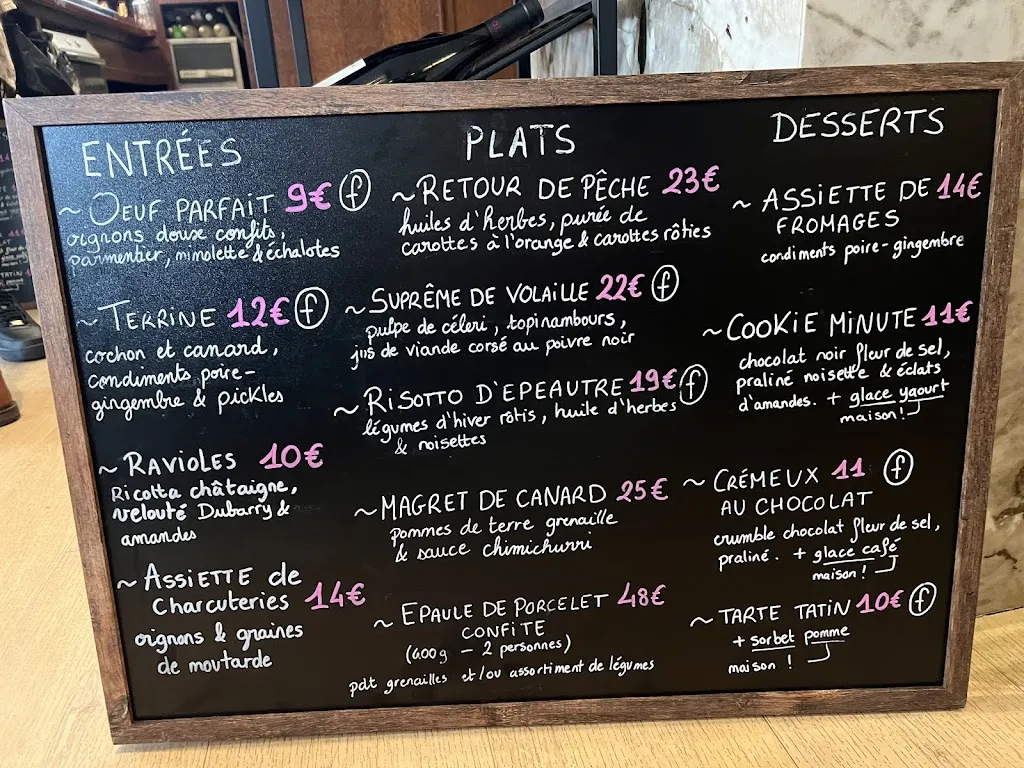 ENTRÉES
~ OEUF PARFAIT 9€ f
oignons doux confits,
parmentier, mimolette & échalotes
~ TERRINE 12€ f
cochon et canard,
condiments poire-
gingembre & pickles
~ RAVIOLES 10€
Ricotta châtaigne,
velouté Dubarry &
amandes
~ ASSIETTE de
Charcuteries 14€
oignons & graines
de moutarde
PLATS
~ RETOUR DE PÊCHE 23€
huiles d'herbes, purée de
carottes à l'orange & carottes rôties
~ SUPRÊME DE VOLAILLE 22€ f
pulpe de céleri, topinambours,
jus de viande corsé au poivre noir
~ RISOTTO D'EPEAUTRE 19€ f
légumes d'hiver rôtis, huile d'herbes
& noisettes
~ MAGRET DE CANARD 25€
pommes de terre grenaille
& sauce chimichurri
~ EPAULE DE PORCELET 48€
CONFITE
(600g - 2 personnes)
pdt grenailles et/ou assortiment de légumes
DESSERTS
~ ASSIETTE DE 14€
FROMAGES
condiments poire-gingembre
~ COOKIE MINUTE 11€
chocolat noir fleur de sel,
praliné noisette & éclats
d'amandes. + glace yaourt
maison!
~ CRÉMEUX 11 f
AU CHOCOLAT
crumble chocolat fleur de sel,
praliné. + glace café
maison!
~ TARTE TATIN 10€ f
+ sorbet pomme
maison !